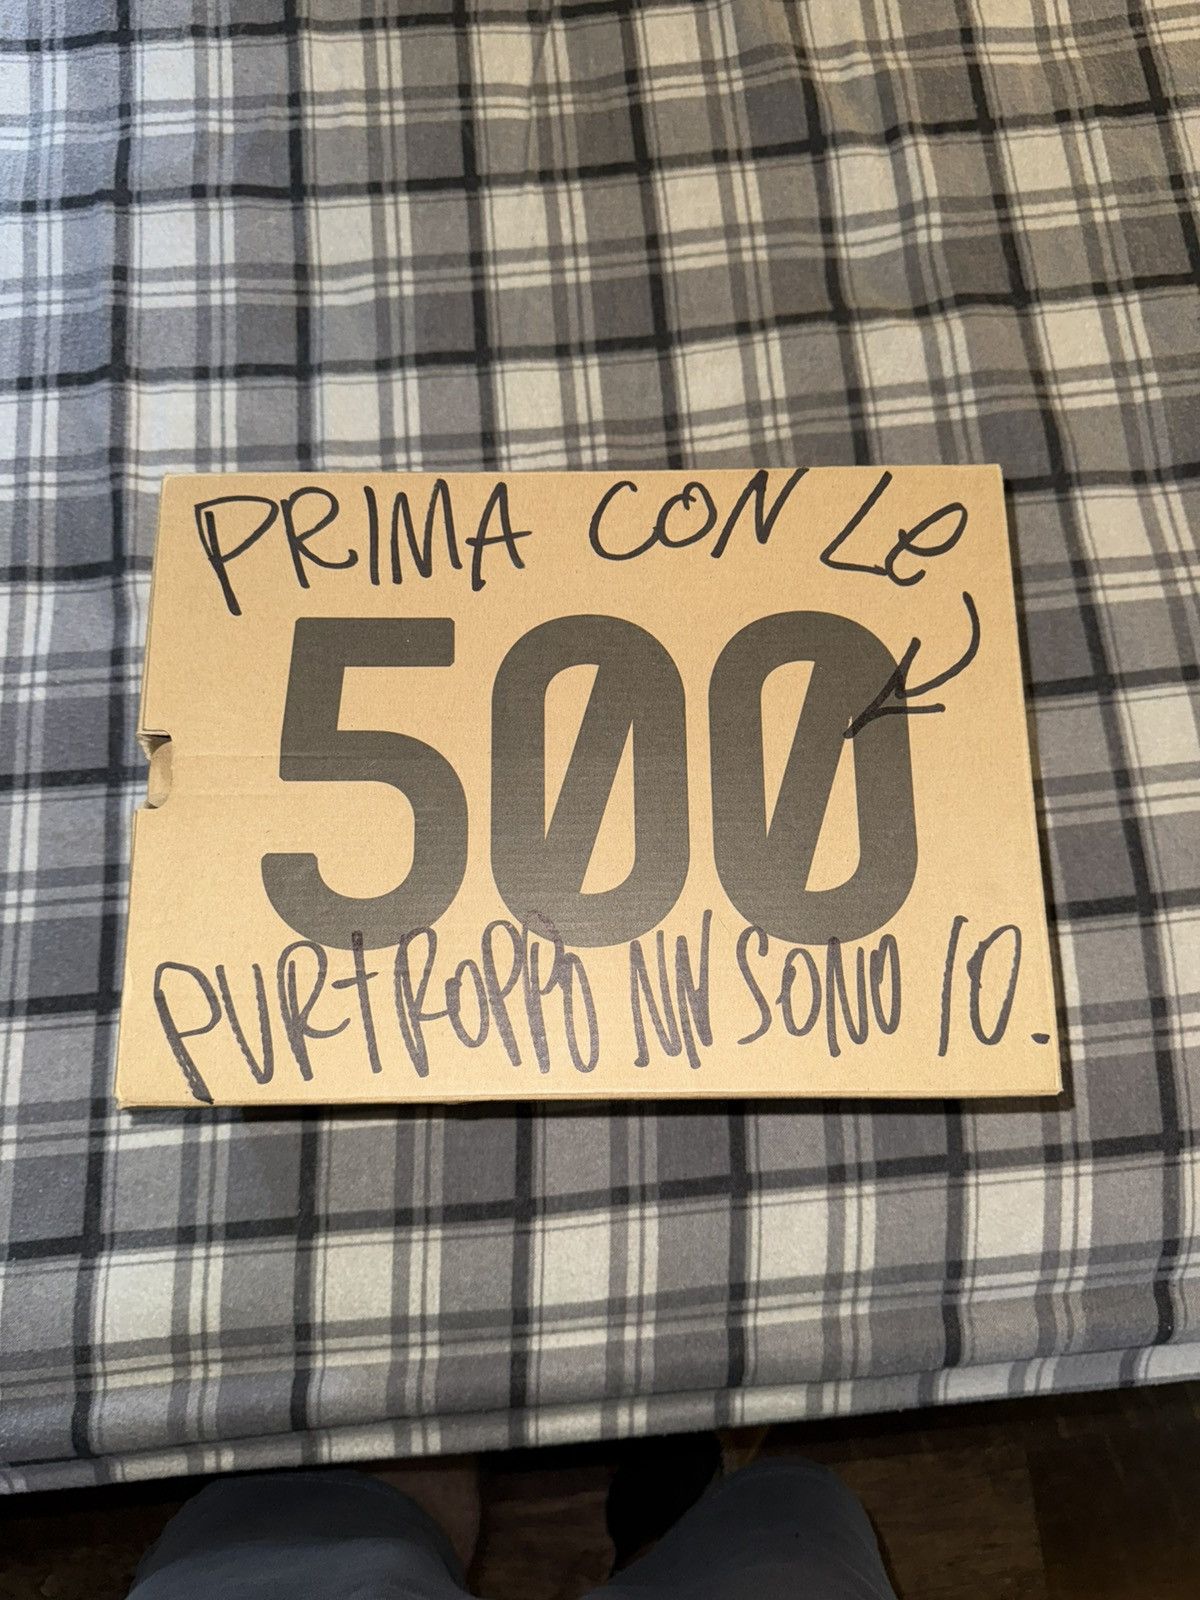 PRIMA CON Le
500
PURTROPPO NN SONO IO.